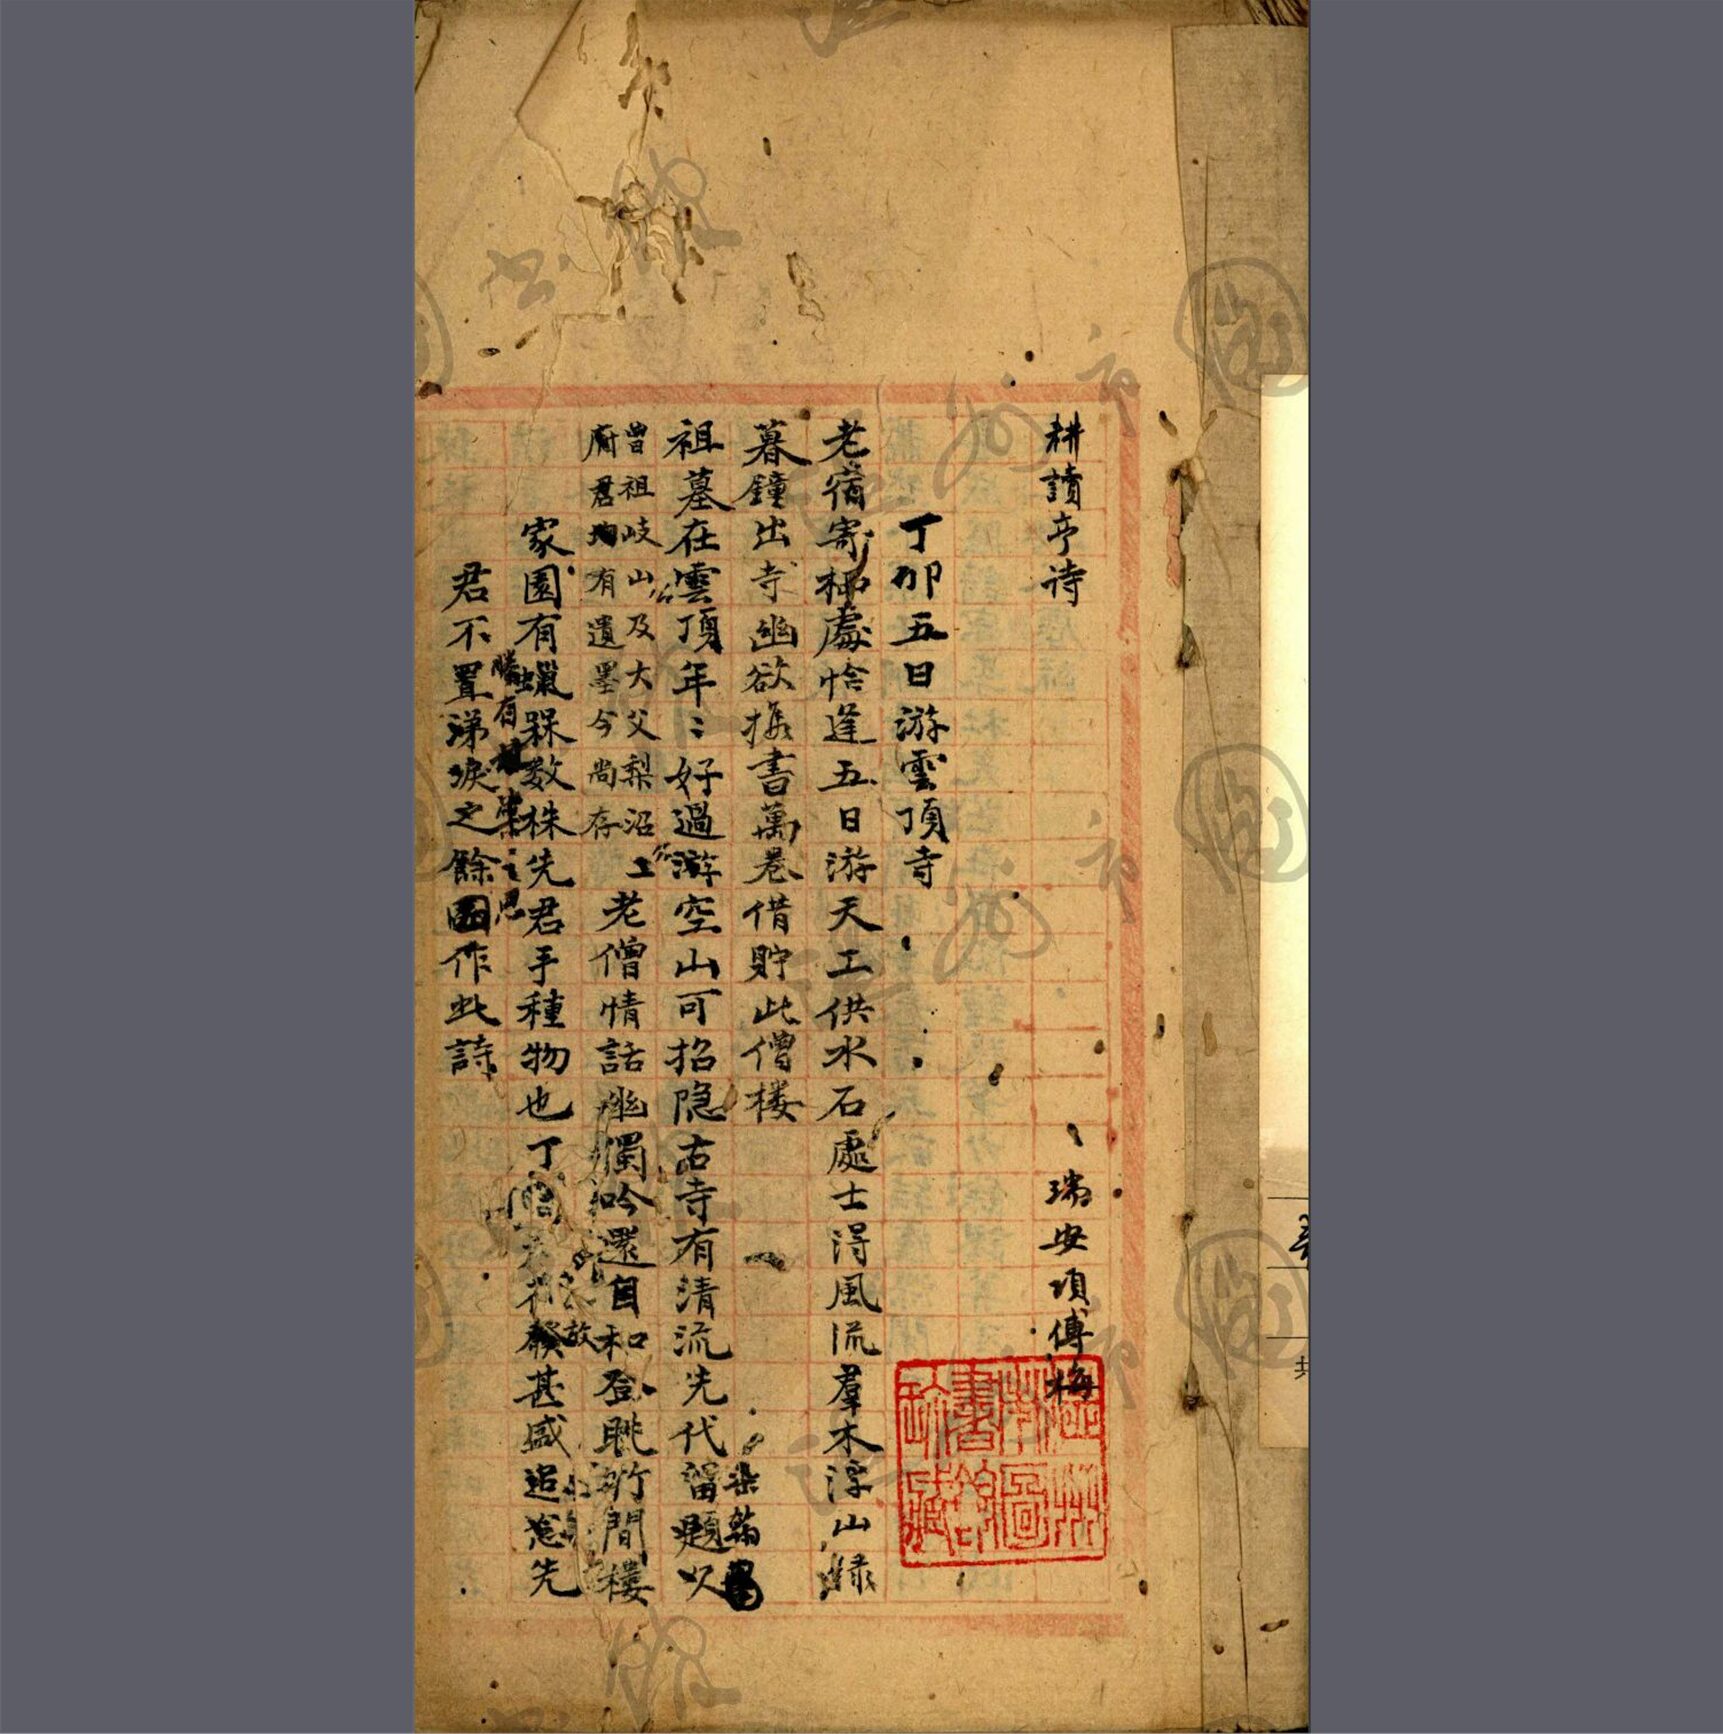 耕讀亭诗
瑞安項傅梅
丁卯五日游雲頂寺
老宿寄栖處恰逢五日游天工供水石處士得風流羣木浮山緑
暮鐘出寺幽欲携書萬卷借貯此僧楼
祖墓在雲頂年〻好過游空山可招隐古寺有清流先代留題以
染翰
曾祖岐山公及大父梨沼公
府君均有遺墨今尚存
上老僧情話幽獨吟還自和登眺竹間樓
家園有蠟梅数株先君手種物也丁
放甚盛追念先
君不置涕淚之餘因作此詩
温州市圖書館珍藏